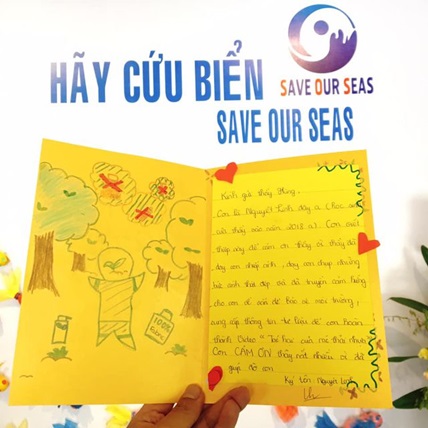 HÃY CỨU BIỂN
SAVE OUR SEAS
SAVE OUR SEAS
100%
Kính gửi thầy Hùng,
Con là Nguyệt Linh đây ạ (học
của thầy vào năm 2018 ạ). Con viết
thiệp này để cảm ơn thầy vì thầy đã
dạy con nhiếp ảnh, dạy con chụp những
bức ảnh thật đẹp và đã truyền cảm hứng
cho con về vấn đề bảo vệ môi trường,
cung cấp thông tin tư liệu để con hoàn
thành "Tác hại của rác thải nhựa
Con CẢM ƠN thầy rất nhiều vì đã
giúp đỡ con.
Ký tên: Nguyệt Linh